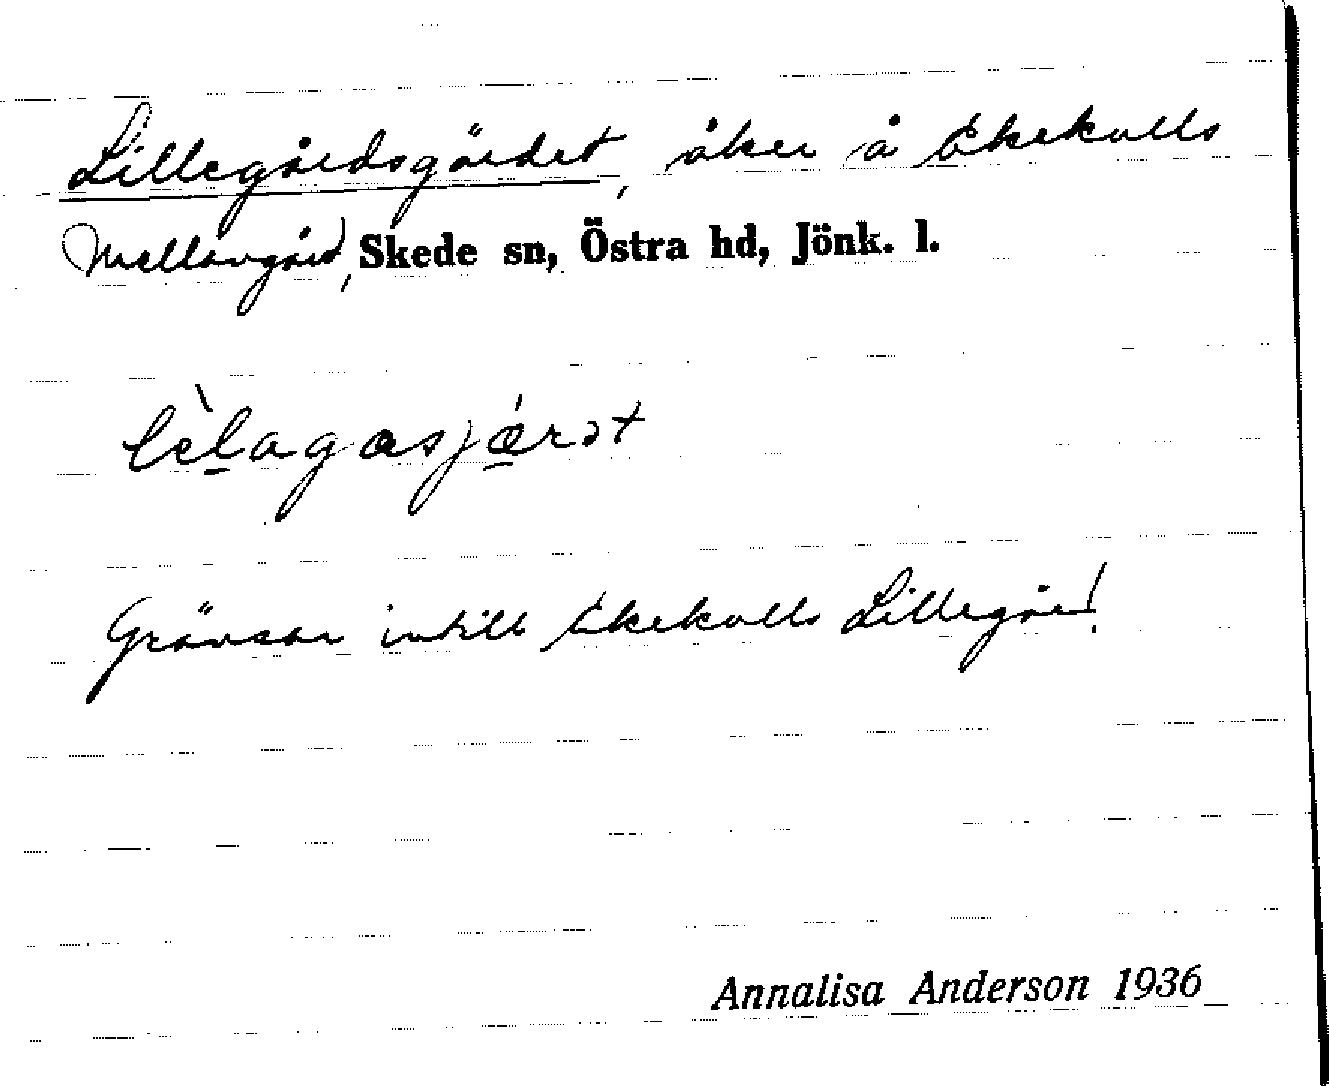 Lillegårdsgärdet, åker å Ekekulls
Mellangård, Skede sn, Östra hd, Jönk. l.
lèlagasjǽrət
Gränsar intill Ekekulls Lillegård.
Annalisa Anderson 1936